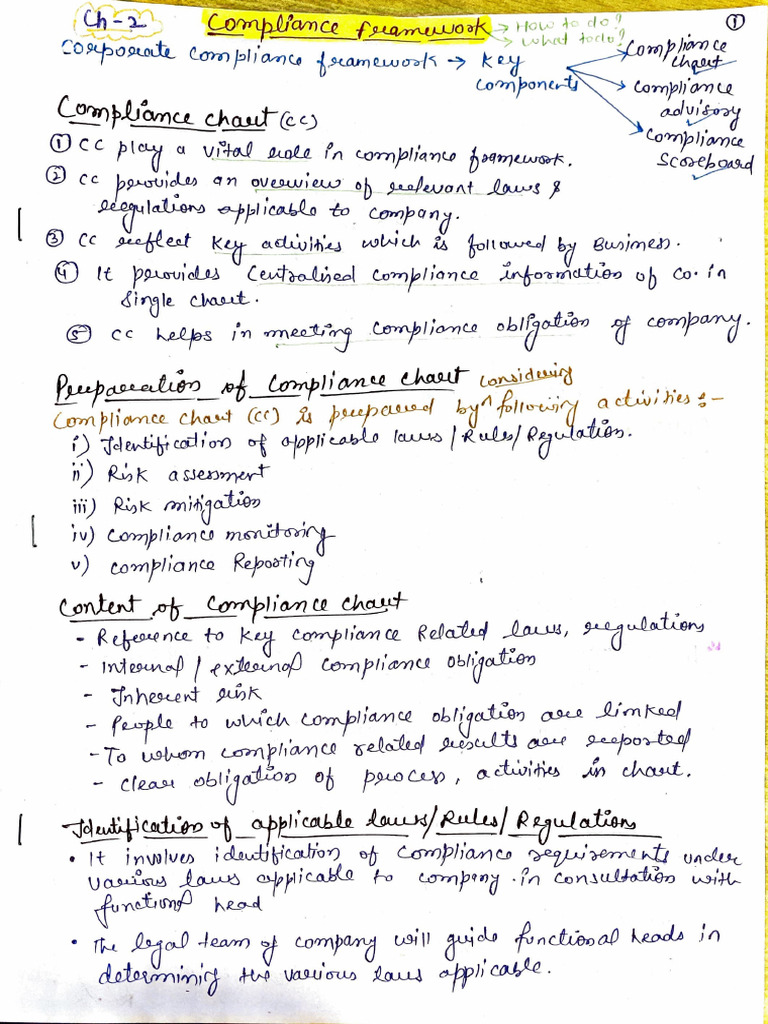 Ch-2 Compliance framework → How to do? ①
→ What to do?
Corporate compliance framework → Key components
Compliance chart
Compliance advisory
Compliance Scoreboard
Compliance chart (CC)
① CC play a vital role in compliance framework.
② CC provides an overview of relevant laws &
regulations applicable to company.
③ CC reflect key activities which is followed by Business.
④ It provides Centralised compliance information of Co. in
Single chart.
⑤ CC helps in meeting compliance obligation of company.
Preparation of compliance chart
Compliance chart (CC) is prepared by ^ considering following activities :-
i) Identification of applicable laws/Rules/Regulation.
ii) Risk assessment
iii) Risk mitigation
iv) Compliance monitoring
v) Compliance Reporting
Content of compliance chart
- Reference to key compliance Related laws, regulations
- Internal/external compliance obligation
- Inherent risk
- People to which compliance obligation are linked
- To whom compliance related results are reported
- Clear obligation of process, activities in chart.
Identification of applicable laws/Rules/Regulations
• It involves identification of compliance requirements under
various laws applicable to company in consultation with
functional head
• The legal team of company will guide functional heads in
determining the various laws applicable.